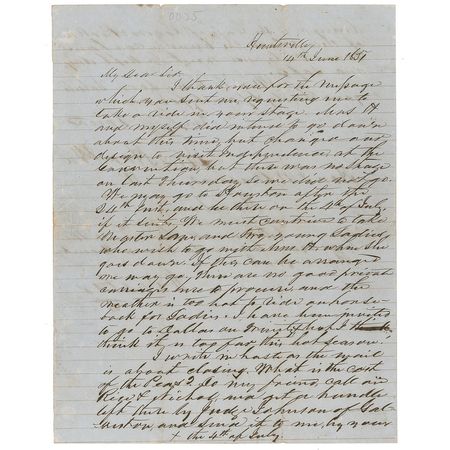 Huntsville,
14th June 1857
My Dear Sir,
I thank you for the message
which you sent me, requesting me to
take a ride in your stage. Mrs H
and myself did intend to go down
about this time, but changed our
design to visit Independence at the
Convention, but there was no stage
on last Thursday, so we did not go.
We may go to Houston after the
24th Inst, and be there on the 4th of July
if it suits. We must contrive to take
and two young Ladies,
who wish to go with Mrs H when she
goes down. If this can be arranged
we may go. There are no good private
carriages here to procure, and the
weather is too hot to ride on horse-
back for Ladies. I have been invited
to go to Dallas on but I
think it is too far this hot season.
I write in haste as the mail
is about closing. What is the cost
of the Peas? Do my friend, call on
and get a bundle
left there by Judge Johnson of Gal-
veston, and send it to me, by your
+ the 4th of July.